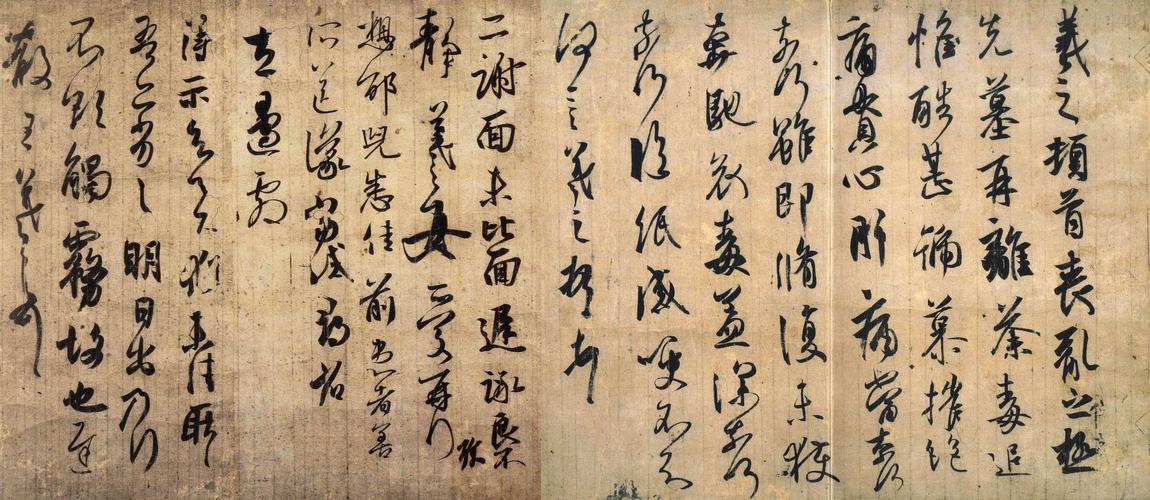 羲之頓首喪亂之極
先墓再離荼毒追
惟酷甚號慕摧絕
痛貫心肝痛當奈何
奈何雖即脩復未獲
奔馳哀毒益深奈何
奈何臨紙感哽不知
何言羲之頓首頓首
二謝面未比面遲詠良不
靜羲之女愛愛再拜
想邰兒悉佳前患者善
所送議當試尋省
左邊劇
得示知足下猶未佳耿耿
吾亦劣劣明日出乃行
不欲觸霧故也遲
散王羲之頓首